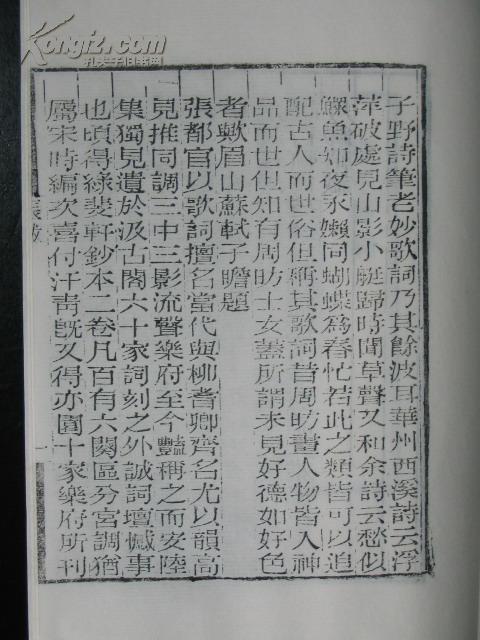 Kongfz.com
孔夫子旧书网
子野詩筆老妙歌詞乃其餘波耳華州西溪詩云浮
萍破處見山影小艇歸時聞草聲又和余詩云愁似
鰥魚知夜永嬾同蝴蝶為春忙若此之類皆可以追
配古人而世俗但稱其歌詞昔周昉畫人物皆入神
品而世但知有周昉士女蓋所謂未見好德如好色
者歟眉山蘇軾子瞻題
張都官以歌詞擅名當代與柳耆卿齊名尤以韻高
見推同調三中三影流聲樂府至今豔稱之而安陸
集獨見遺於汲古閣六十家詞刻之外誠詞壇憾事
也頃得綠斐軒鈔本二卷凡百有六闋區分宮調猶
屬宋時編次喜付汗靑旣又得亦園十家樂府所刊